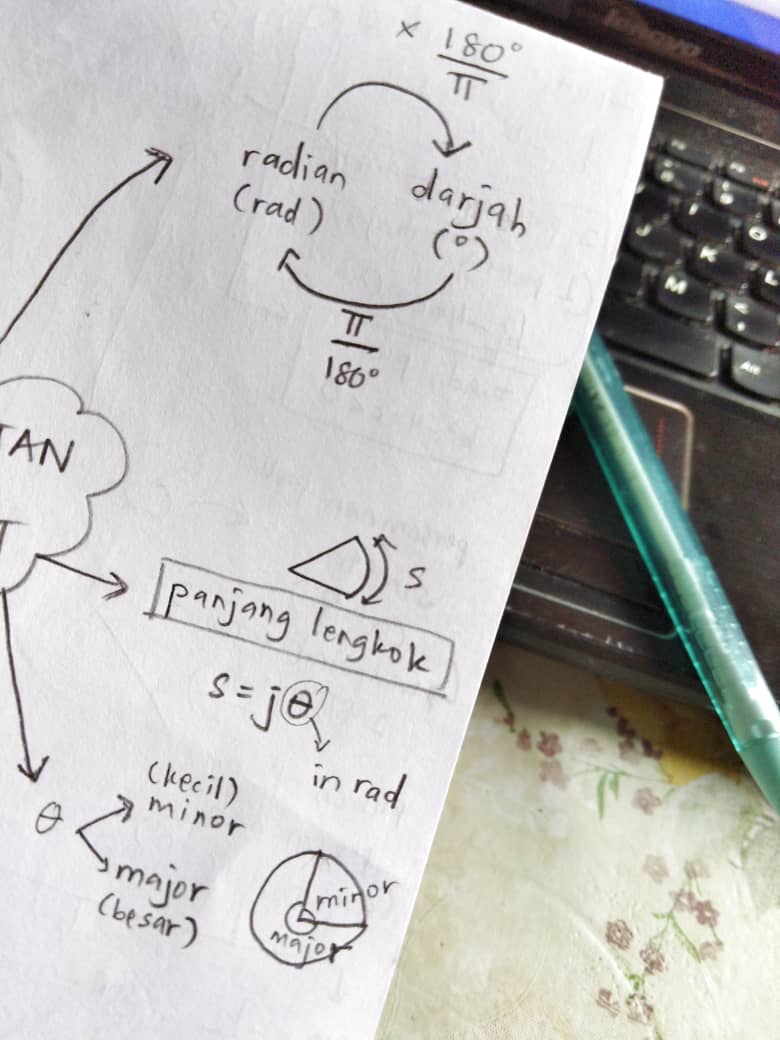 × 180°
π
radian
(rad)
darjah
(°)
π
180°
TAN
s
panjang lengkok
s = jθ
in rad
θ
(kecil)
minor
major
(besar)
minor
major
lenovo
J
K
L
M
Alt